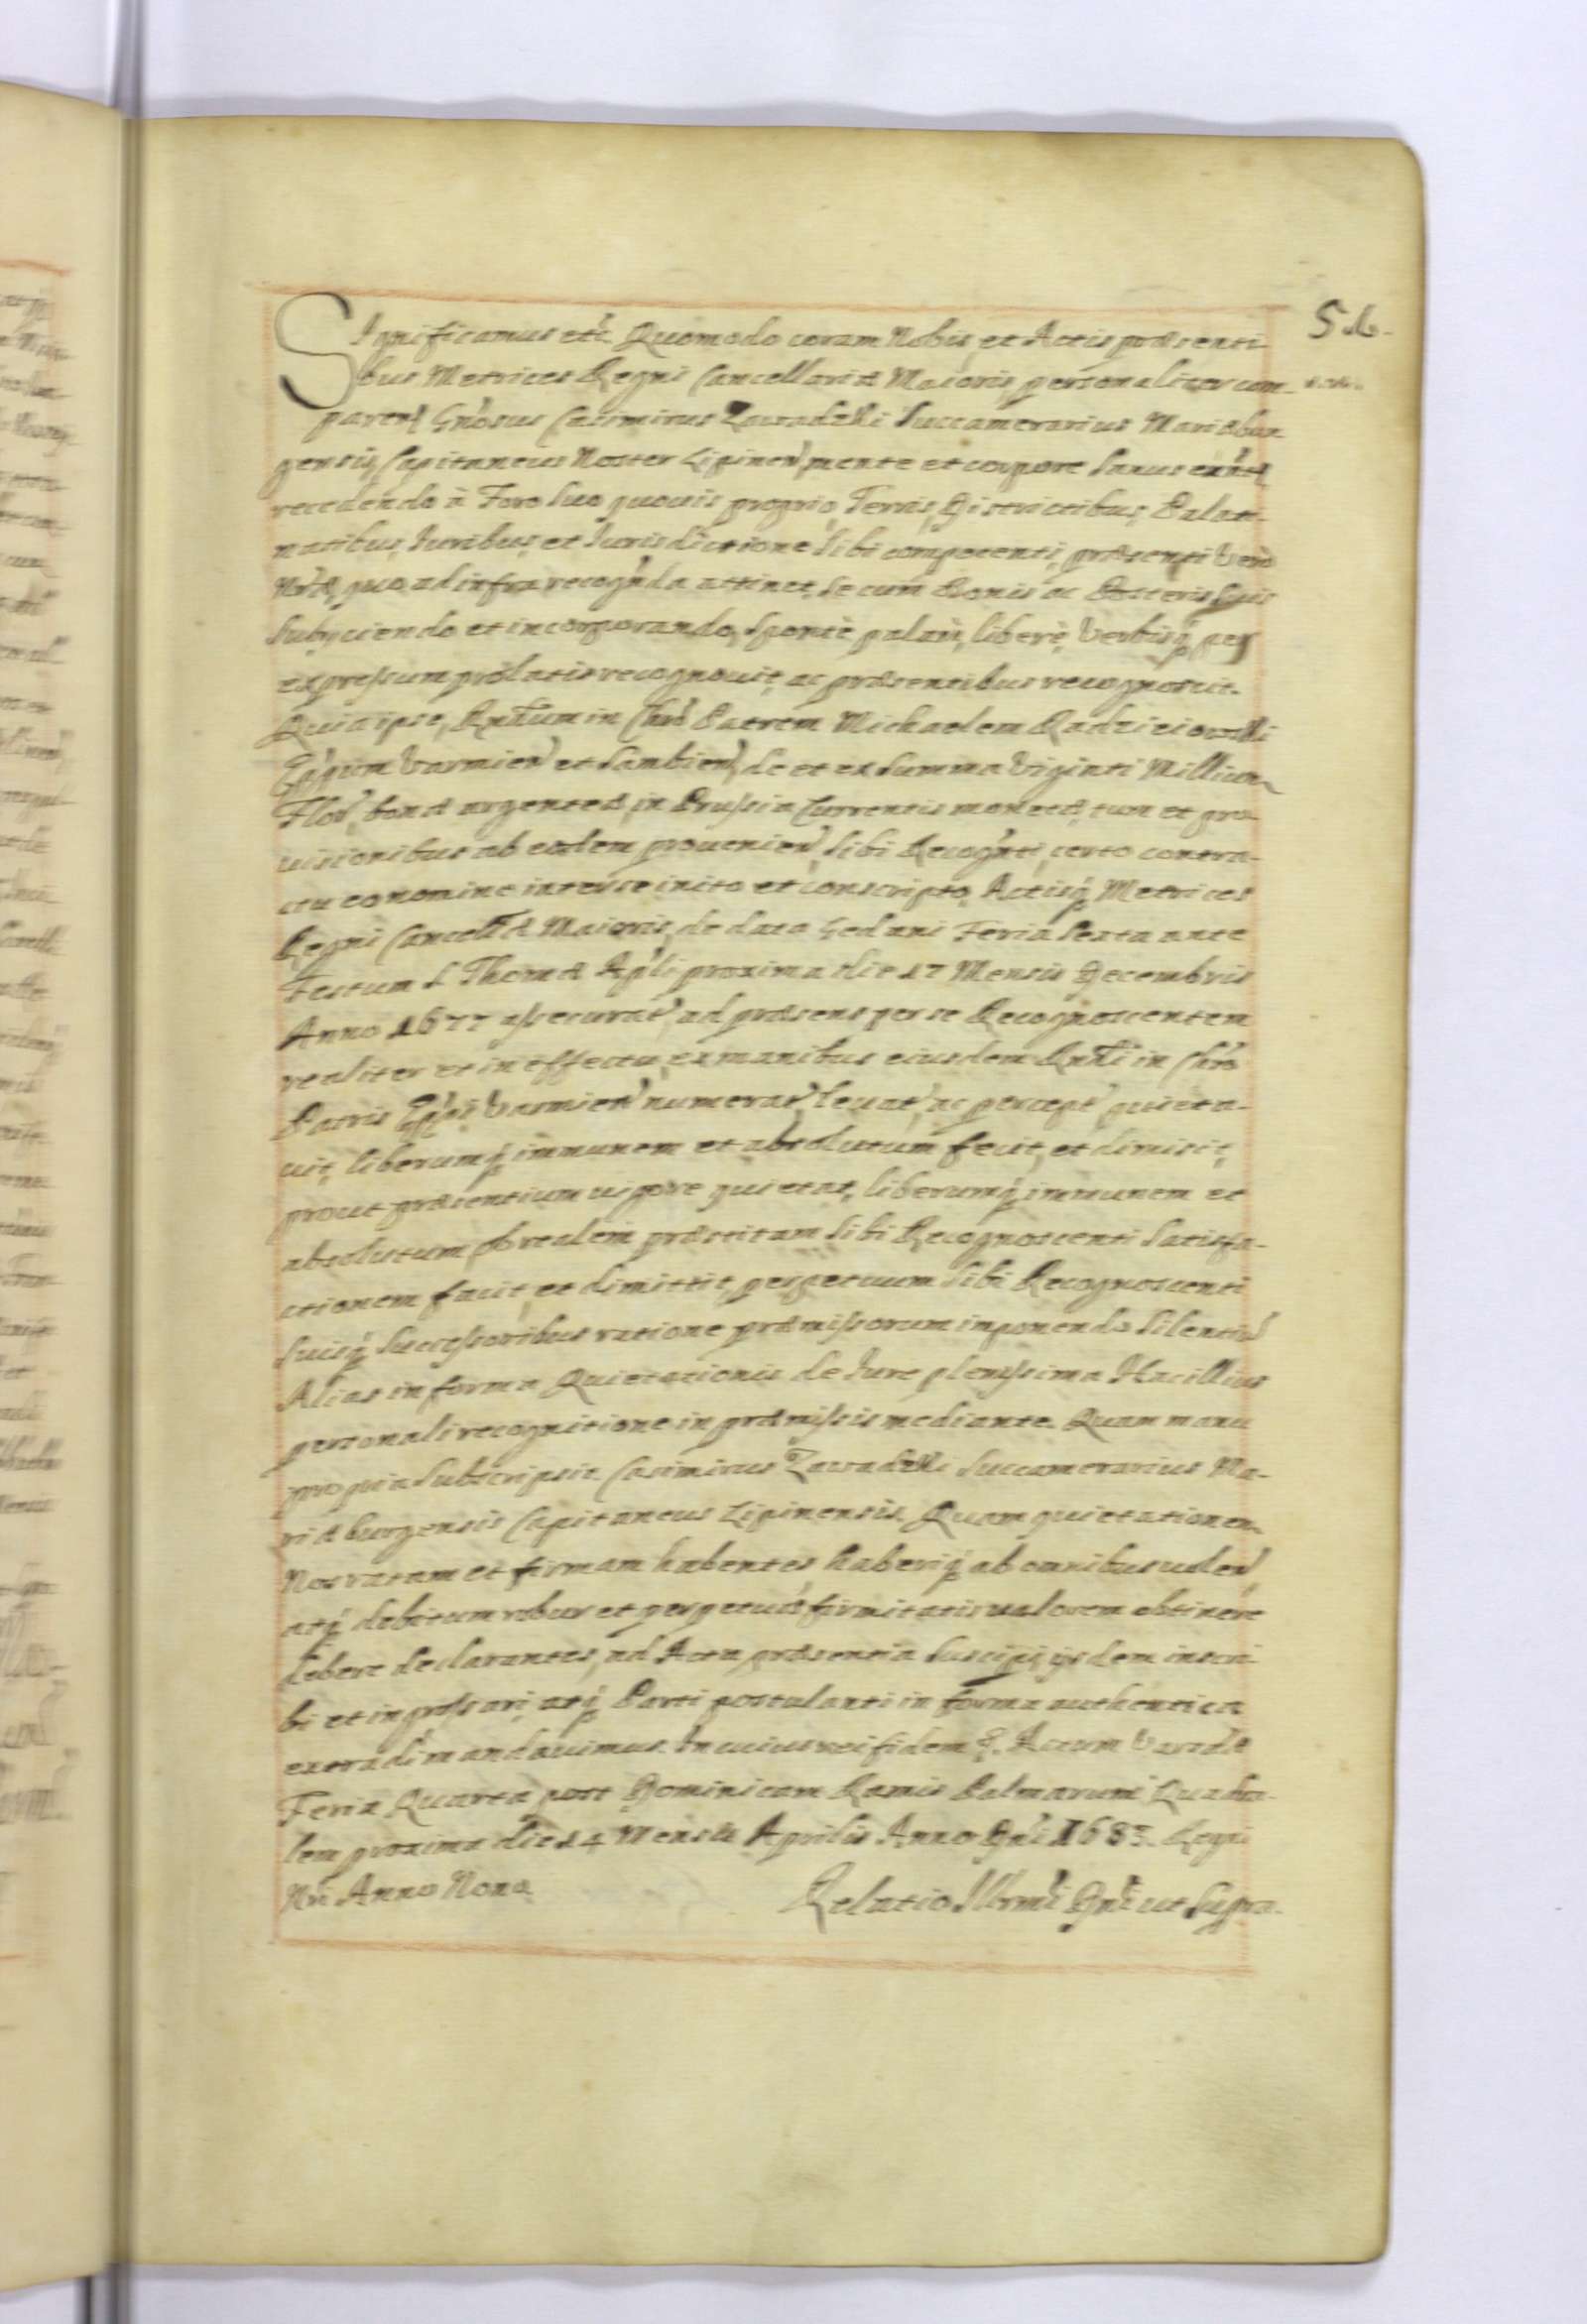 56.
Significamus etc. Quomodo coram Nobis et Actis præsenti-
bus Metrices Regni Cancellariæ Maioris personaliter com-
paren̄ Gn̄osus Casimirus Zawadzki Succamerarius Mariæbur-
gensis, Capitaneus Noster Lipinen̄ mente et corpore sanus
recedendo à Foro suo quouis proprio, Terris, Districtibus, Palati-
natibus, Iuribus, et Iurisdictione sibi competenti, præsenti verò
Nr̄æ, quo ad infra recogn̄da attinet, se cum Bonis ac Posteris suis
subijciendo et incorporando, sponte palam, libere, verbisq́ per
expressum prolatis recognouit, ac præsentibus recognoscit.
Quia ipse, Rn̄dum in Chrō Patrem Michaelem Radzieiowski
Ep̄pum Varmien̄ et Sambien̄, de et ex summa Viginti Millium
Flor̄, bonæ argenteæ in Prussia Currentis monetæ, tum et pro-
uisionibus ab eadem prouenien̄ sibi Recogn̄ti, certo contra-
ctu eo nomine inter se inito et conscripto, Actisq́ Metrices
Regni Cancell̄æ Maioris, de data Gedani Feria Sexta ante
Festum S. Thomæ Ap̄li proxima die 17 Mensis Decembris
Anno 1677 assecurat̄ ad præsens per se Recognoscentem
realiter et in effectu, ex manibus eiusdem Rn̄di in Chrō
Patris Ep̄pi Varmien̄ numerat̄, leuat̄ ac percept̄ quieta-
uit, liberumq́ immunem et absolutum fecit, et dimisit,
prout præsentium uigore quietat, liberumq́ immunem et
absolutum, ob realem præstitam sibi Recognoscenti satisfa-
ctionem facit, et dimittit, perpetuum sibi Recognoscenti
suisq́ successoribus ratione præmissorum imponendo silentiū
Alias in forma Quietationis de Iure plenissima Hac illius
personali recognitione in præmissis mediante. Quam manu
propria subscripsit. Casimirus Zawadzki Succamerarius Ma-
riæburgensis Capitaneus Lipinensis. Quam quietationem
Nos ratam et firmam habentes haberiq́ ab omnibus uolen̄
atq́ debitum robur et perpetuæ firmitatis ualorem obtinere
debere declarantes, ad Acta præsentia suscipi, ijsdem inscri-
bi et ingrossari, atq́ Parti postulanti in forma authentica
extradi mandauimus. In cuius rei fidem &. Actum
Feria Quarta post Dominicam Ramis Palmarum
proxima die 14 Mensis Aprilis Anno Dn̄i 1683. Regni
Nr̄i Anno Nono.
Relatio Illrmi Dn̄i ut supra.